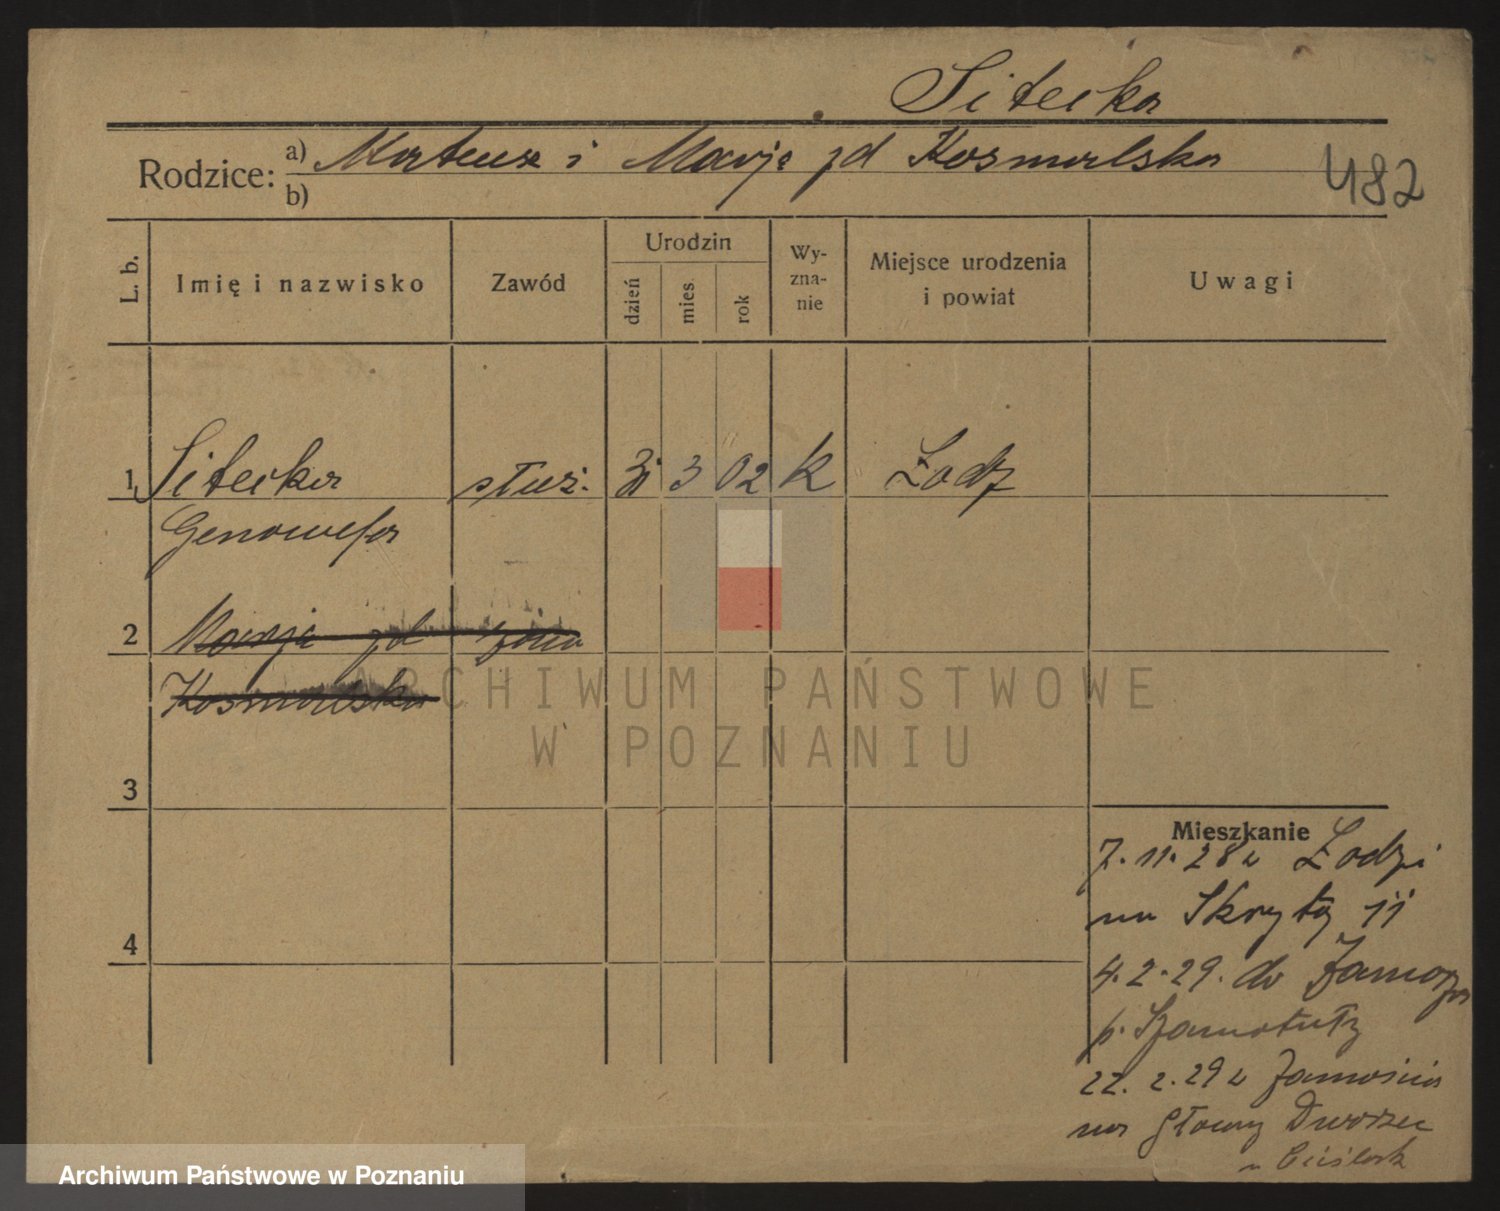 Sitecka
Rodzice: a) Mateusz i Marja zd Kosmalska
b)
482
L. b.
Imię i nazwisko
Zawód
Urodzin
dzień
mies.
rok
Wy-
zna-
nie
Miejsce urodzenia
i powiat
Uwagi
1 Sitecka służ. 3 02 k Łodz
Genowefa
2 Marja zd żona
Kosmalska
3
Mieszkanie
7.11.28 z Łodzi
na Skrytą 11
4
4.2.29. do
p. Szamotuły
22.2.29 z
na Główny Dworzec
u
ARCHIWUM PAŃSTWOWE
W POZNANIU
Archiwum Państwowe w Poznaniu